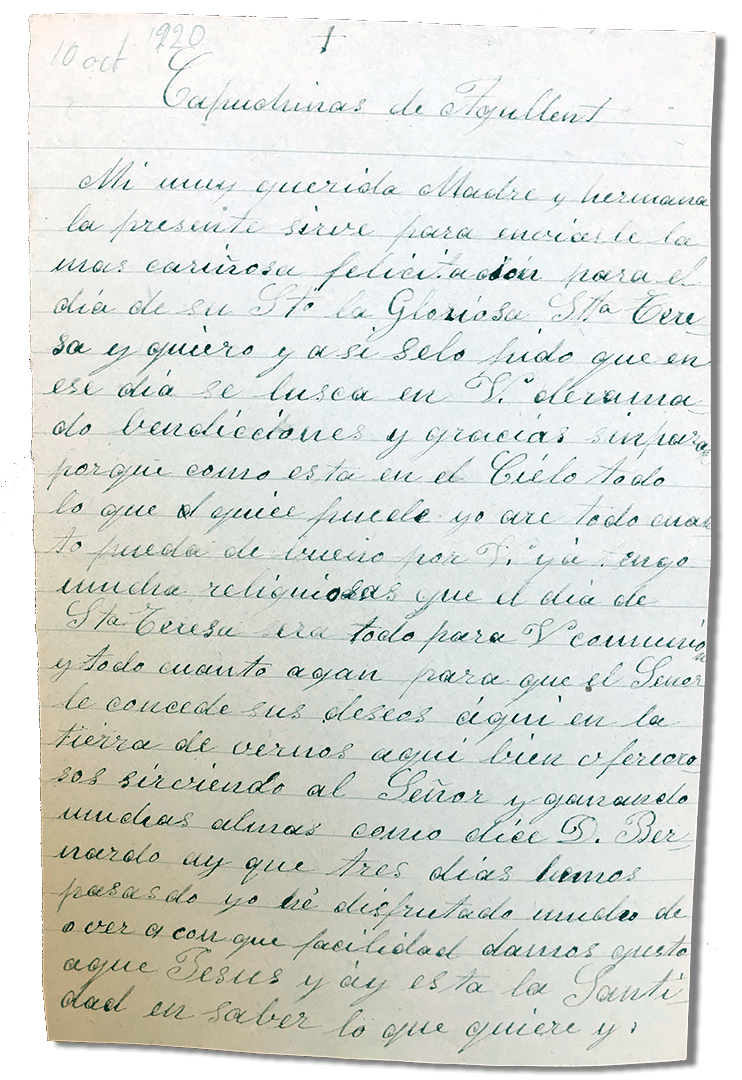 10 oct 1920
†
Capuchinas de Agullent
Mi muy querida Madre y hermana
la presente sirve para enviasle la
mas cariñosa felicitación para el
día de su Sto la Gloriosa Stta Tere-
sa y quiero y asi selo pido que en
ese día se lusca en V. derama-
do bendicciones y gracias sinpara
porque como esta en el Ciélo todo
lo que quice puede yo are todo cuan
to pueda de bueno por V. yá tengo
mucha religiosas que el día de
Sta Teresa sera todo para V comunión
y todo cuanto agan para que el Señor
le concede sus deseos áqui en la
tierra de vernos aqui bien fervoro-
sos sirviendo al Señor y ganando
muchas almas como dice D. Ber-
nardo ay que tres días hemos
pasasdo yo hé disfrutado mucho de
over acon que facilidad damos gusto
aque Jesus y áy esta la Santi-
dad en saber lo que quiere y